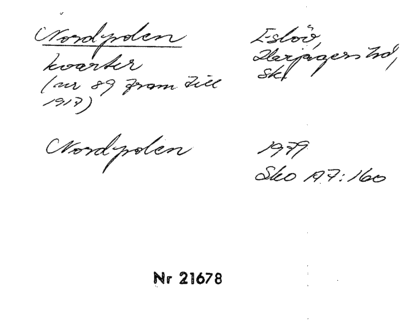 Nordpolen Eslöv,
kvarter Harjagers hd,
(nr 89 fram till Sk
1917)
Nordpolen 1979
Sko A7:160
Nr 21678